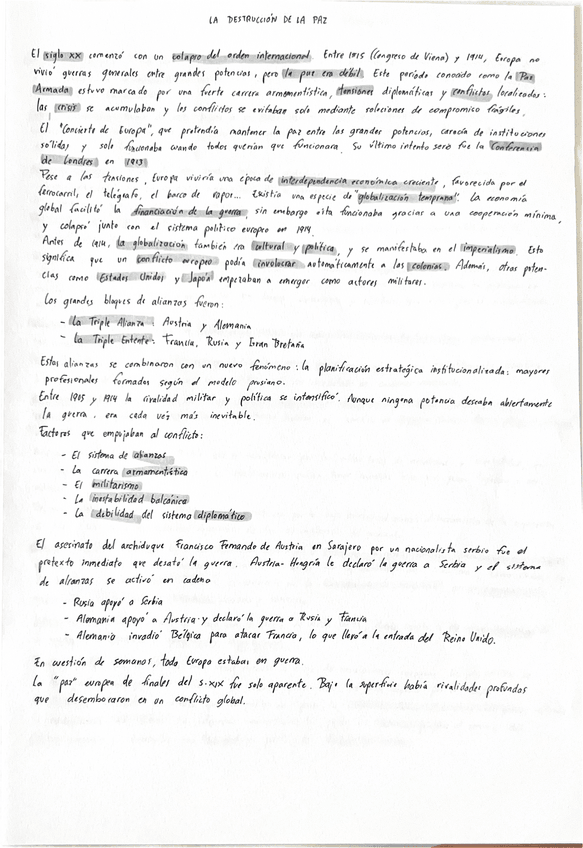 LA DESTRUCCIÓN DE LA PAZ
El siglo XX comenzó con un colapso del orden internacional. Entre 1815 (Congreso de Viena) y 1914, Europa no
vivió guerras generales entre grandes potencias, pero la paz era débil. Este período conocido como la Paz
Armada estuvo marcado por una fuerte carrera armamentística, tensiones diplomáticas y conflictos localizados:
las crisis se acumulaban y los conflictos se evitaban solo mediante soluciones de compromiso frágiles.
El "Concierto de Europa", que pretendía mantener la paz entre las grandes potencias, carecía de instituciones
sólidas y solo funcionaba cuando todos querían que funcionara. Su último intento serio fue la Conferencia
de Londres en 1913
Pese a las tensiones, Europa viviría una época de interdependencia económica creciente, favorecida por el
ferrocarril, el telégrafo, el barco de vapor... Existía una especie de "globalización temprana". La economía
global facilitó la financiación de la guerra, sin embargo ésta funcionaba gracias a una cooperación mínima,
y colapsó junto con el sistema político europeo en 1914.
Antes de 1914, la globalización también era cultural y política, y se manifestaba en el imperialismo. Esto
significa que un conflicto europeo podía involucrar automáticamente a las colonias. Además, otras poten-
cias como Estados Unidos y Japón empezaban a emerger como actores militares.
Los grandes bloques de alianzas fueron:
- La Triple Alianza: Austria y Alemania
- La Triple Entente: Francia, Rusia y Gran Bretaña
Estas alianzas se combinaron con un nuevo fenómeno: la planificación estratégica institucionalizada: mayores
profesionales formados según el modelo prusiano.
Entre 1905 y 1914 la rivalidad militar y política se intensificó. Aunque ninguna potencia deseaba abiertamente
la guerra, era cada vez más inevitable.
Factores que empujaban al conflicto:
- El sistema de alianzas
- La carrera armamentística
- El militarismo
- La inestabilidad balcánica
- La debilidad del sistema diplomático
El asesinato del archiduque Francisco Fernando de Austria en Sarajevo por un nacionalista serbio fue el
pretexto inmediato que desató la guerra. Austria-Hungría le declaró la guerra a Serbia y el sistema
de alianzas se activó en cadena
- Rusia apoyó a Serbia
- Alemania apoyó a Austria y declaró la guerra a Rusia y Francia
- Alemania invadió Bélgica para atacar Francia, lo que llevó a la entrada del Reino Unido.
En cuestión de semanas, toda Europa estaba en guerra.
La "paz" europea de finales del s.XIX fue solo aparente. Bajo la superficie había rivalidades profundas
que desembocaron en un conflicto global.